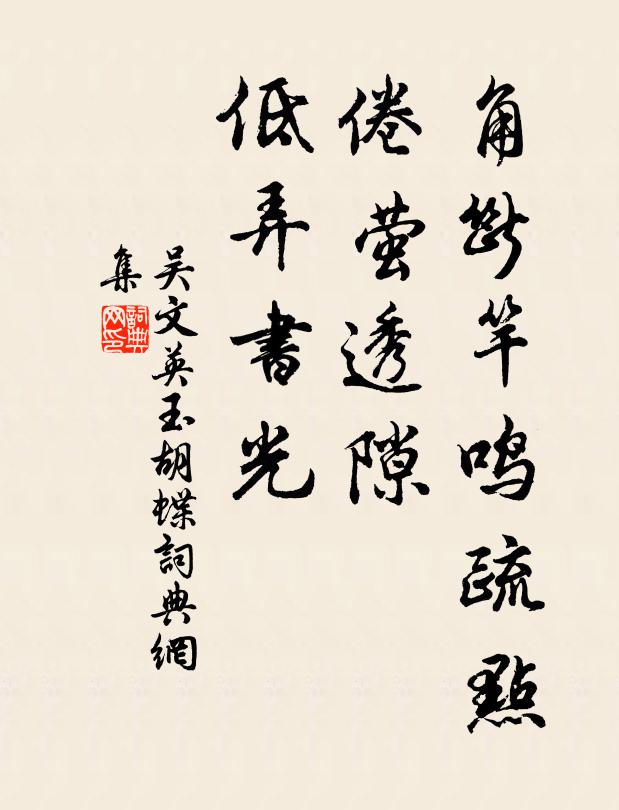 角斷竿鸣疏點
倦萤透隙
低弄書光
吴文英玉胡蝶詞典網
集
詞典
网印